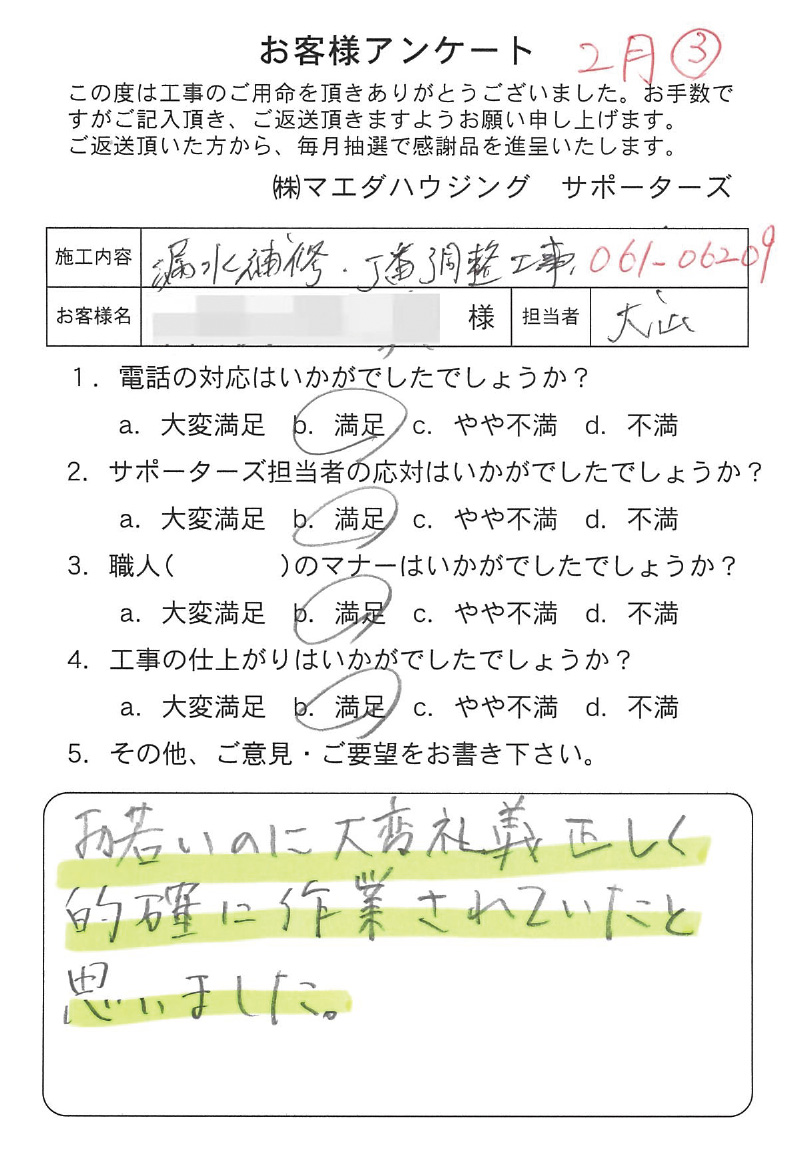 お客様アンケート 2月 ③
この度は工事のご用命を頂きありがとうございました。お手数で
すがご記入頂き、ご返送頂きますようお願い申し上げます。
ご返送頂いた方から、毎月抽選で感謝品を進呈いたします。
㈱マエダハウジング　サポーターズ
施工内容 漏水補修・丁番調整工事 061-06209
お客様名 様 担当者 大山
1．電話の対応はいかがでしたでしょうか？
a. 大変満足 b. 満足 c. やや不満 d. 不満
2. サポーターズ担当者の応対はいかがでしたでしょうか？
a. 大変満足 b. 満足 c. やや不満 d. 不満
3. 職人(　　　　)のマナーはいかがでしたでしょうか？
a. 大変満足 b. 満足 c. やや不満 d. 不満
4. 工事の仕上がりはいかがでしたでしょうか？
a. 大変満足 b. 満足 c. やや不満 d. 不満
5. その他、ご意見・ご要望をお書き下さい。
お若いのに大変礼義正しく
的確に作業されていたと
思いました。